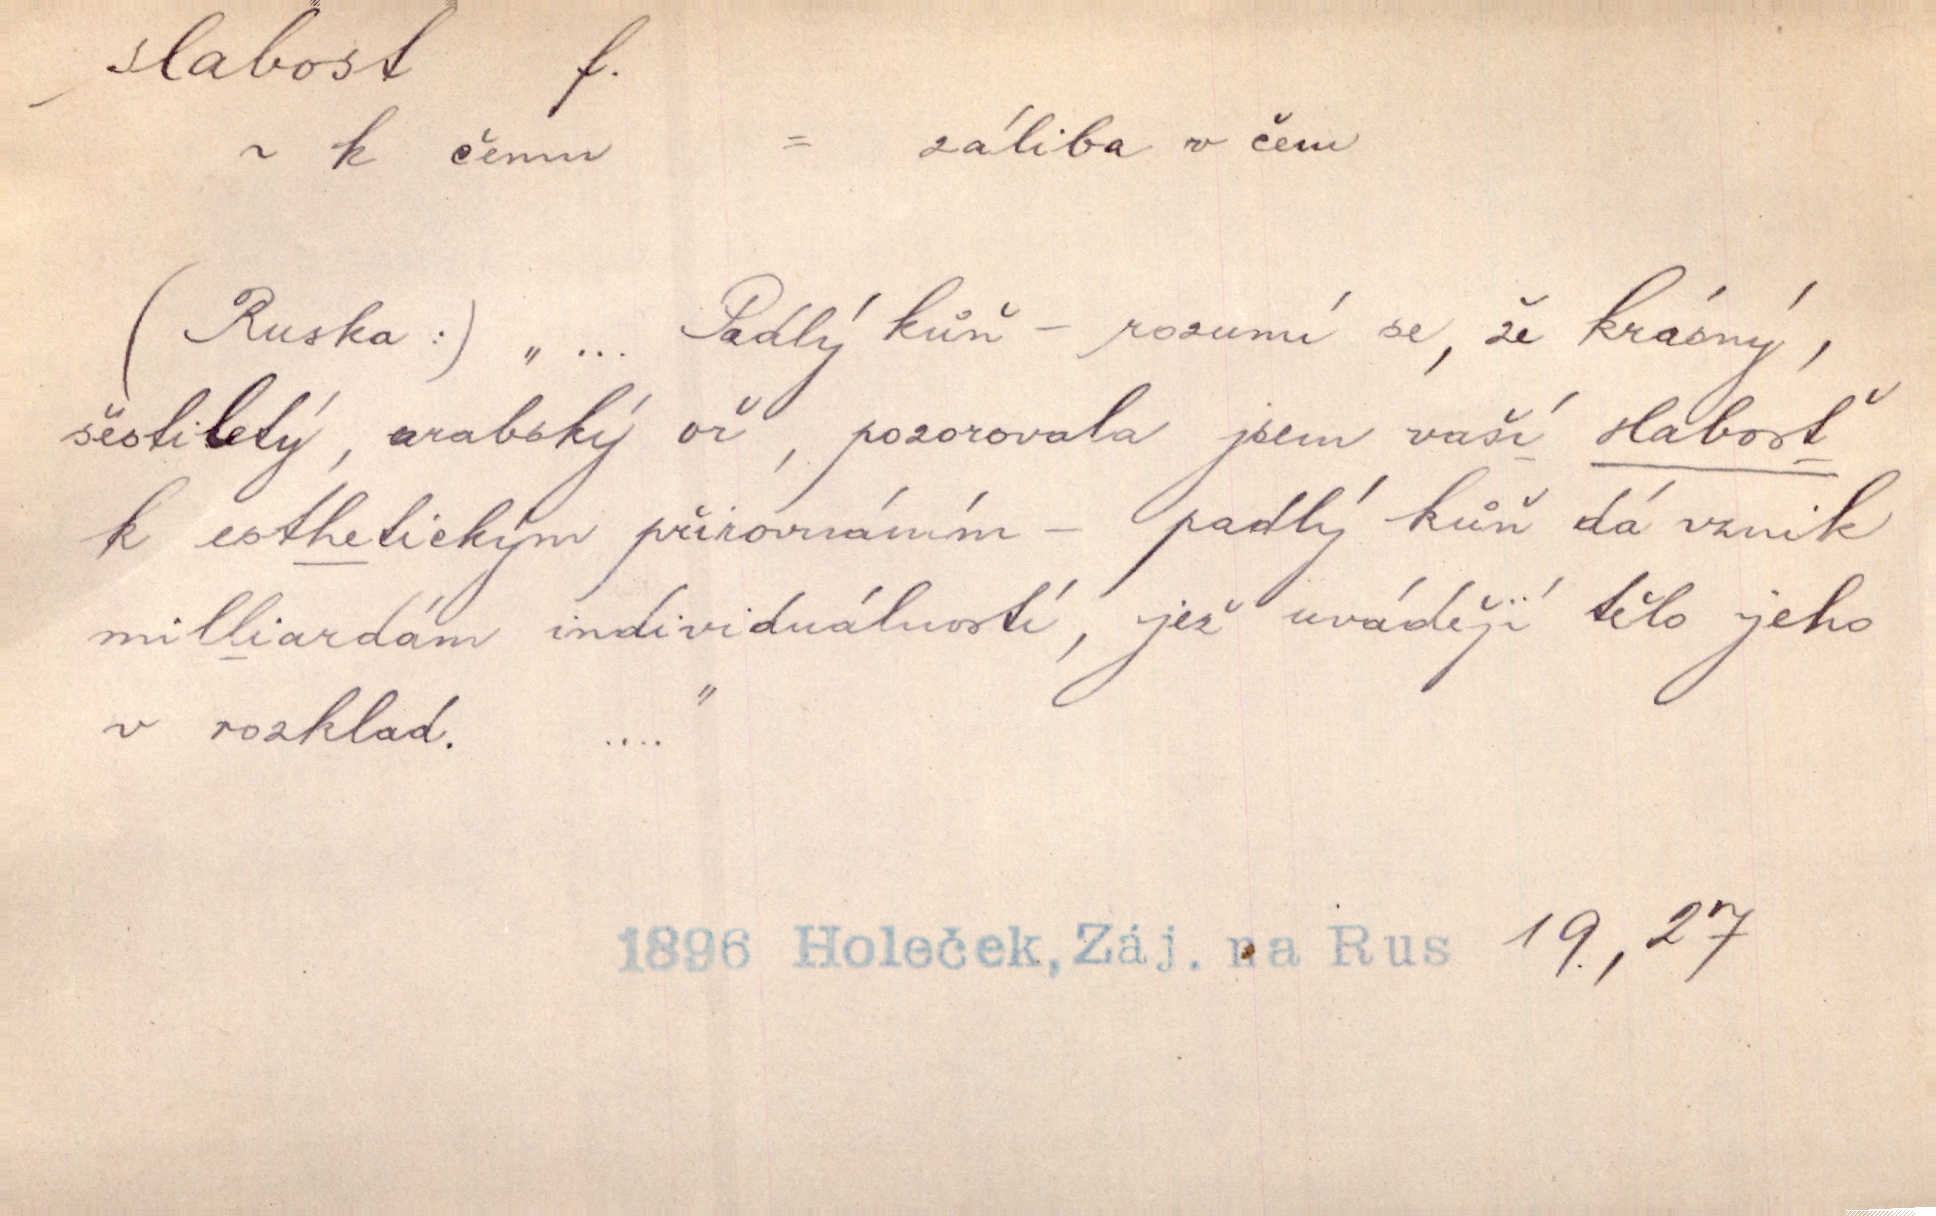 slabost f.
~ k čemu = záliba v čem
(Ruska:) „... Padlý kůň – rozumí se, že krásný,
šestiletý, arabský oř, pozorovala jsem vaší slabosť
k esthetickým přirovnáním – padlý kůň dá vznik
milliardám individuálností, jež uvádějí tělo jeho
v rozklad. ...."
1896 Holeček, Záj. na Rus 19., 27